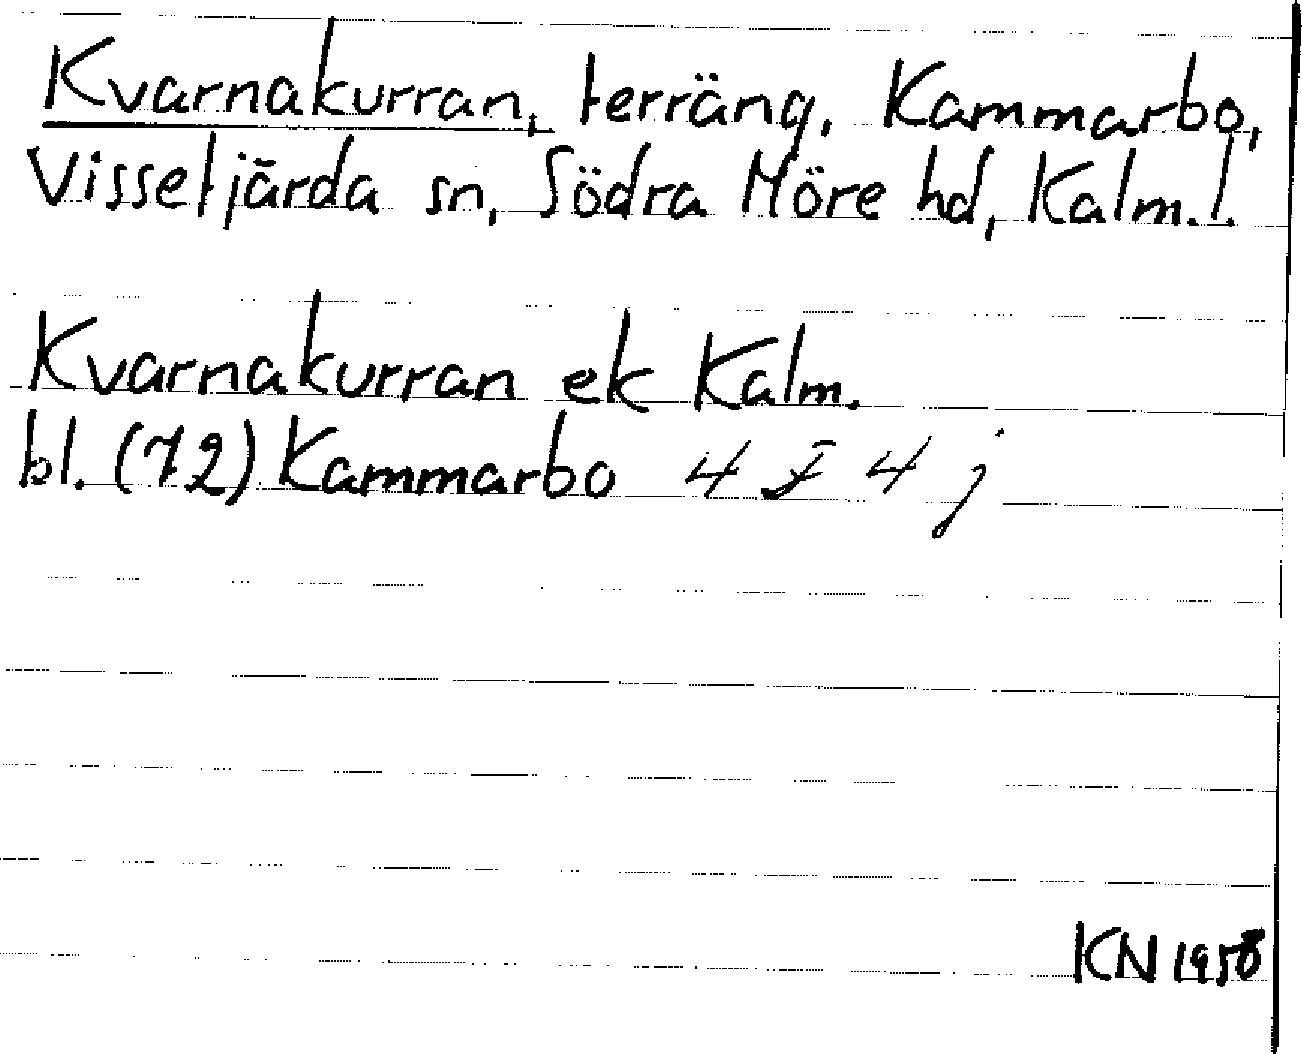 Kvarnakurran, terräng, Kammarbo,
Vissefjärda sn, Södra Möre hd, Kalm.l.
Kvarnakurran ek Kalm.
bl. (72) Kammarbo 4 F 4 j
KN 1958